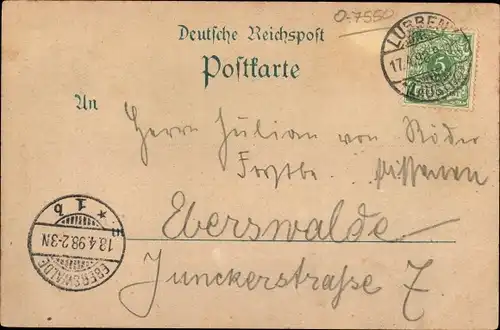 O-7550
Deutsche Reichspost
Postkarte
LÜBBEN
17.4.98
(LAUSITZ)
5
An
Herrn Julian von Röder
Eberswalde
Junckerstrasse 7
EBERSWALDE
18.4.98.2-3N
* 1b